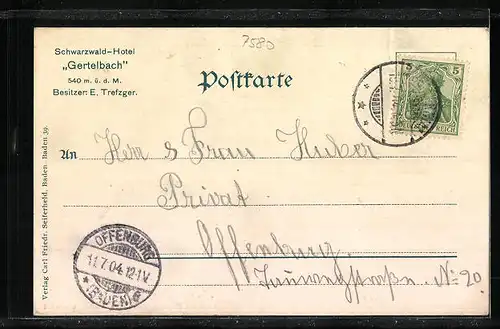 7580
Schwarzwald-Hotel
„Gertelbach"
540 m. ü. d. M.
Besitzer: E. Trefzger.
Postkarte
5 5
REICH
An Herr & Frau Huber
Privat
Offenburg
No 20
OFFENBURG
11.7.04.12-1V
* (BADEN)
Verlag Carl Friedr. Seiferheld, Baden-Baden 39.